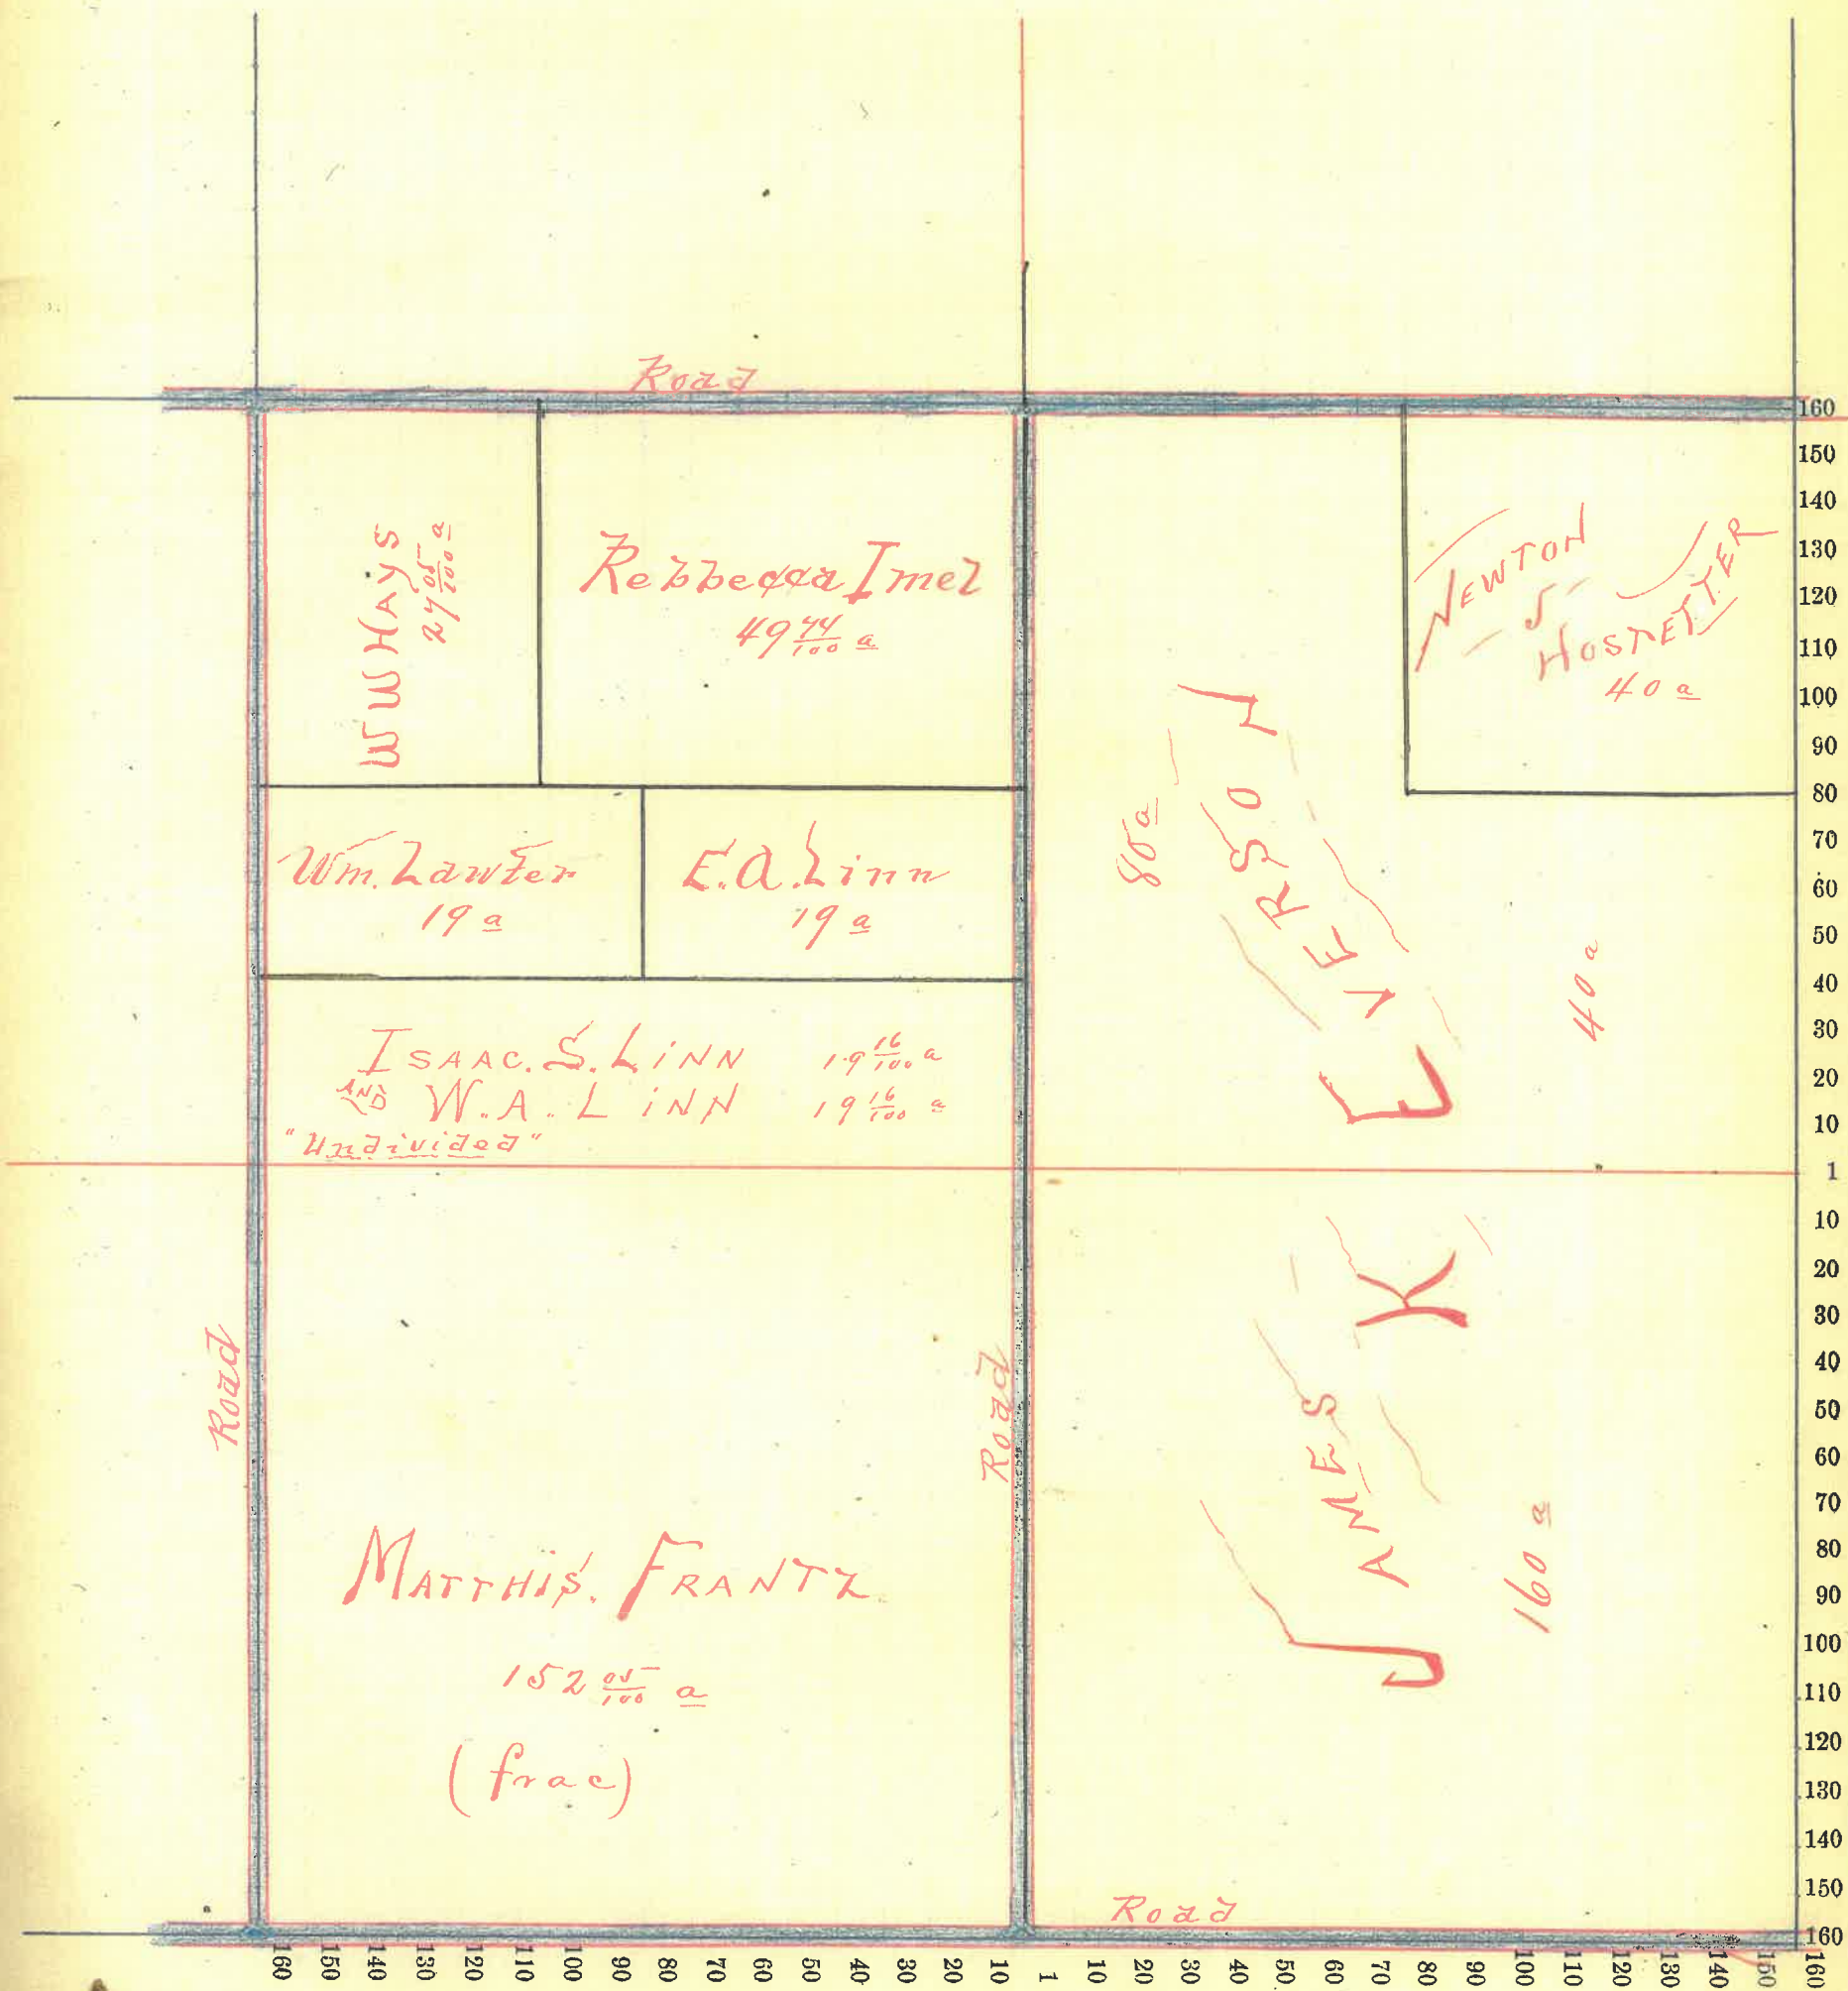 Road
W W HAYS
27 05/100 a
Rebbecca Imel
49 74/100 a
NEWTON
S
HOSTETTER
40 a
Wm. Lawter
19 a
E. A. Linn
19 a
80 a
40 a
ISAAC. S. LINN 19 16/100 a
AND W. A. LINN 19 16/100 a
"Undivided"
JAMES K EVERSON
160 a
Road
Road
MATTHIS. FRANTZ
152 05/100 a
(frac)
Road
160
150
140
130
120
110
100
90
80
70
60
50
40
30
20
10
1
10
20
30
40
50
60
70
80
90
100
110
120
130
140
150
160
160 150 140 130 120 110 100 90 80 70 60 50 40 30 20 10 1 10 20 30 40 50 60 70 80 90 100 110 120 130 140 150 160